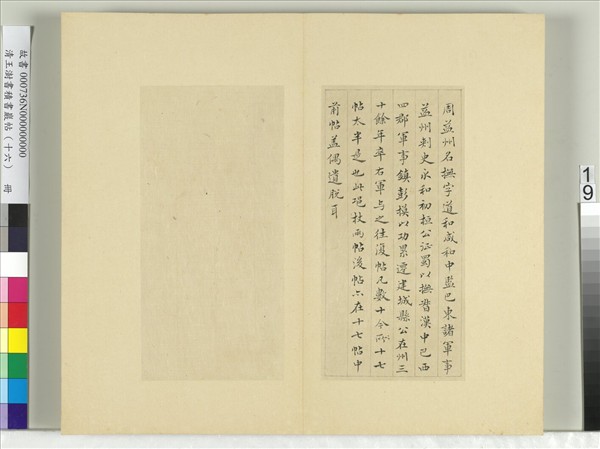 周益州名撫字道和咸和中監巴東諸軍事
益州刺史永和初桓公征蜀以撫督漢中巴西
四郡軍事鎮彭模以功累遷建城縣公在州三
十餘年卒右軍与之往復帖凡數十今所十七
帖太半是也此邛杖兩帖後帖亦在十七帖中
前帖蓋偶遺脫耳
故書 000736N00000000
清王澍書積書巖帖(十六) 冊
19